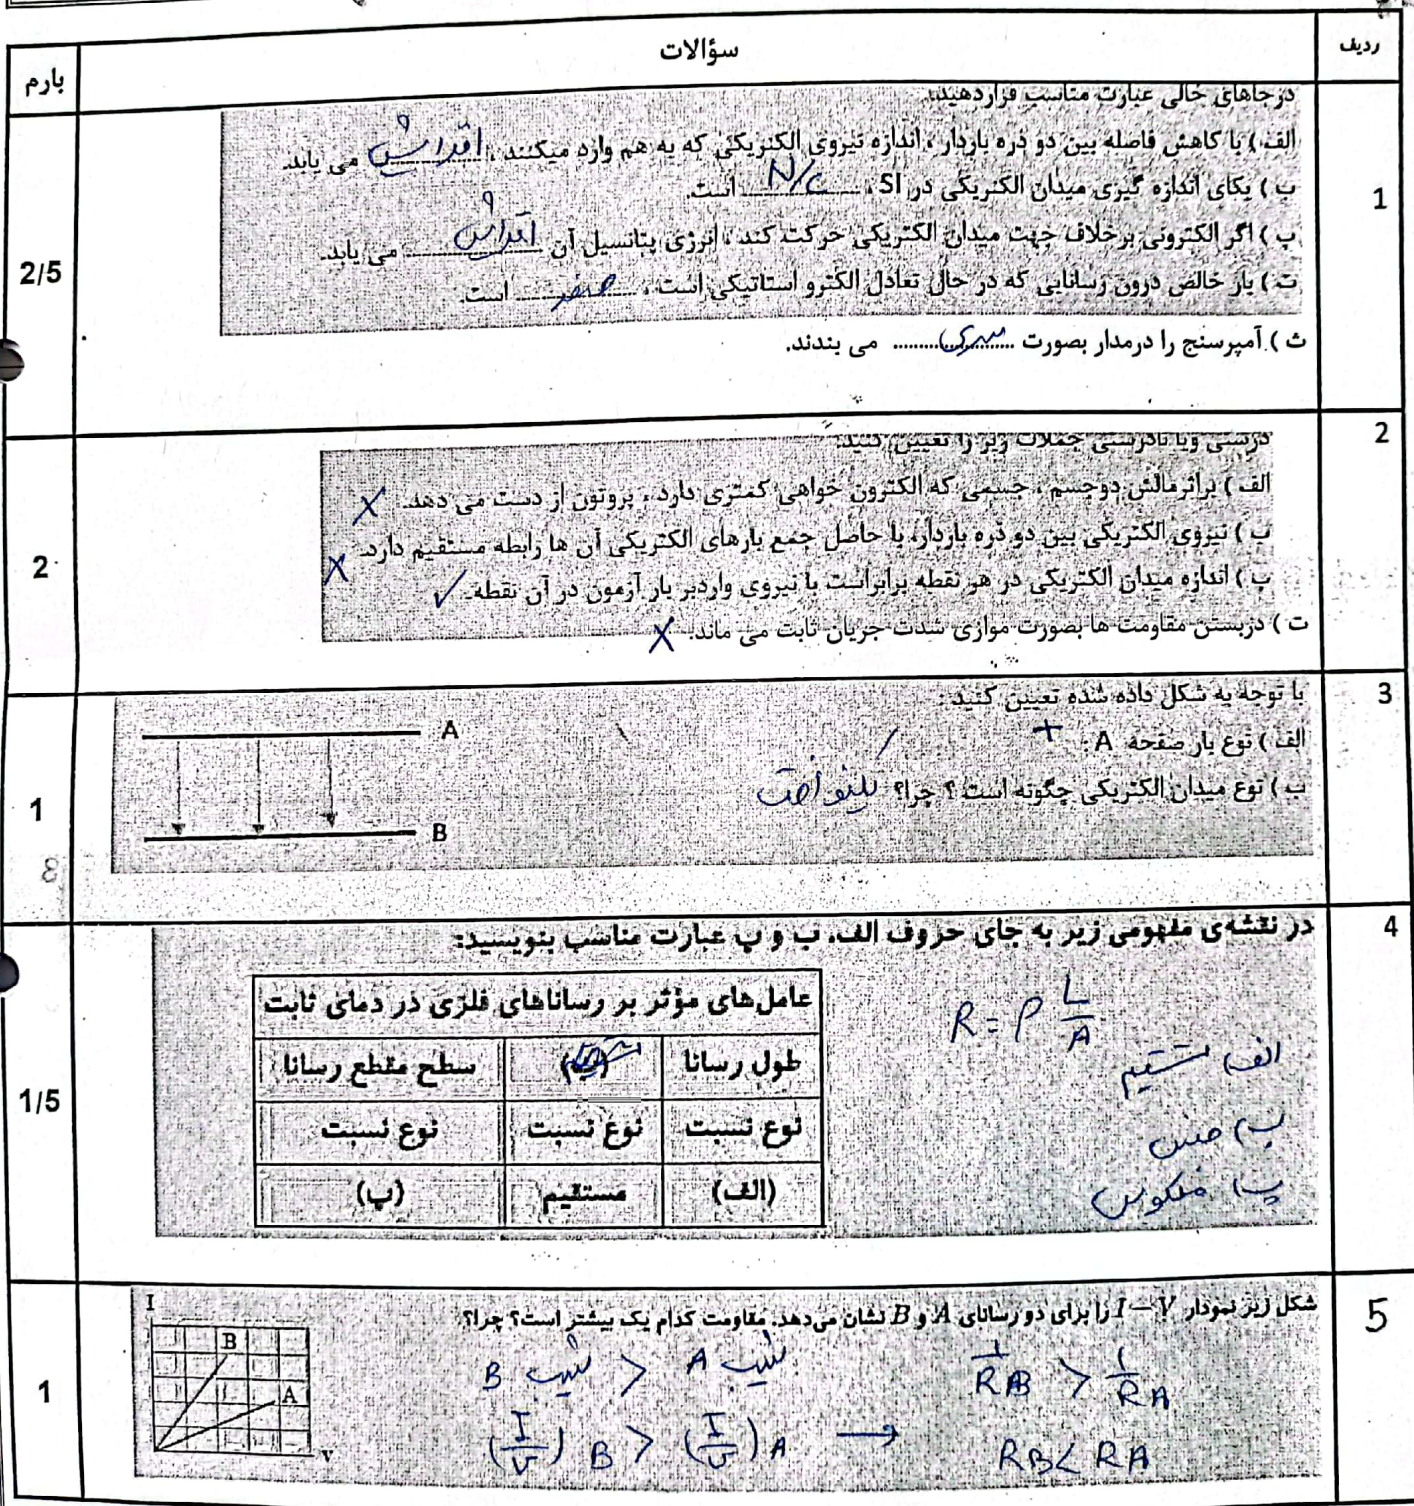 ردیف
سؤالات
بارم
1
درجاهای خالی عبارت مناسب قراردهید.
الف) با کاهش فاصله بین دو ذره باردار ، اندازه نیروی الکتریکی که به هم وارد میکنند ، افزایش می یابد.
ب ) یکای اندازه گیری میدان الکتریکی در SI ، N/C است.
پ ) اگر الکترونی برخلاف جهت میدان الکتریکی حرکت کند ، انرژی پتانسیل آن افزایش می یابد.
ت ) بار خالص درون رسانایی که در حال تعادل الکترو استاتیکی است ، صفر است.
ث ) آمپرسنج را درمدار بصورت سری می بندند.
2/5
2
درستی ویا نادرستی جملات زیر را تعیین کنید.
الف ) براثر مالش دوجسم ، جسمی که الکترون خواهی کمتری دارد ، پروتون از دست می دهد. X
ب ) نیروی الکتریکی بین دو ذره باردار، با حاصل جمع بارهای الکتریکی آن ها رابطه مستقیم دارد. X
پ ) اندازه میدان الکتریکی در هر نقطه برابراست با نیروی واردبر بار آزمون در آن نقطه. ✓
ت ) دربستن مقاومت ها بصورت موازی شدت جریان ثابت می ماند. X
2
3
با توجه به شکل داده شده تعیین کنید :
الف ) نوع بار صفحه A : +
ب ) نوع میدان الکتریکی چگونه است ؟ چرا؟ یکنواخت
A
B
1
4
در نقشه‌ی مفهومی زیر به جای حروف الف، ب و پ عبارت مناسب بنویسید:
عامل‌های مؤثر بر رساناهای فلزی در دمای ثابت
طول رسانا (ب) سطح مقطع رسانا
نوع نسبت نوع نسبت نوع نسبت
(الف) مستقیم (پ)
R = ρ L/A
الف) مستقیم
ب) جنس
پ) معکوس
1/5
5
شکل زیر نمودار I – V را برای دو رسانای A و B نشان می‌دهد. مقاومت کدام یک بیشتر است؟ چرا؟
I
B
A
V
شیب B > شیب A
1/RB > 1/RA
(I/V) B > (I/V) A →
RB < RA
1